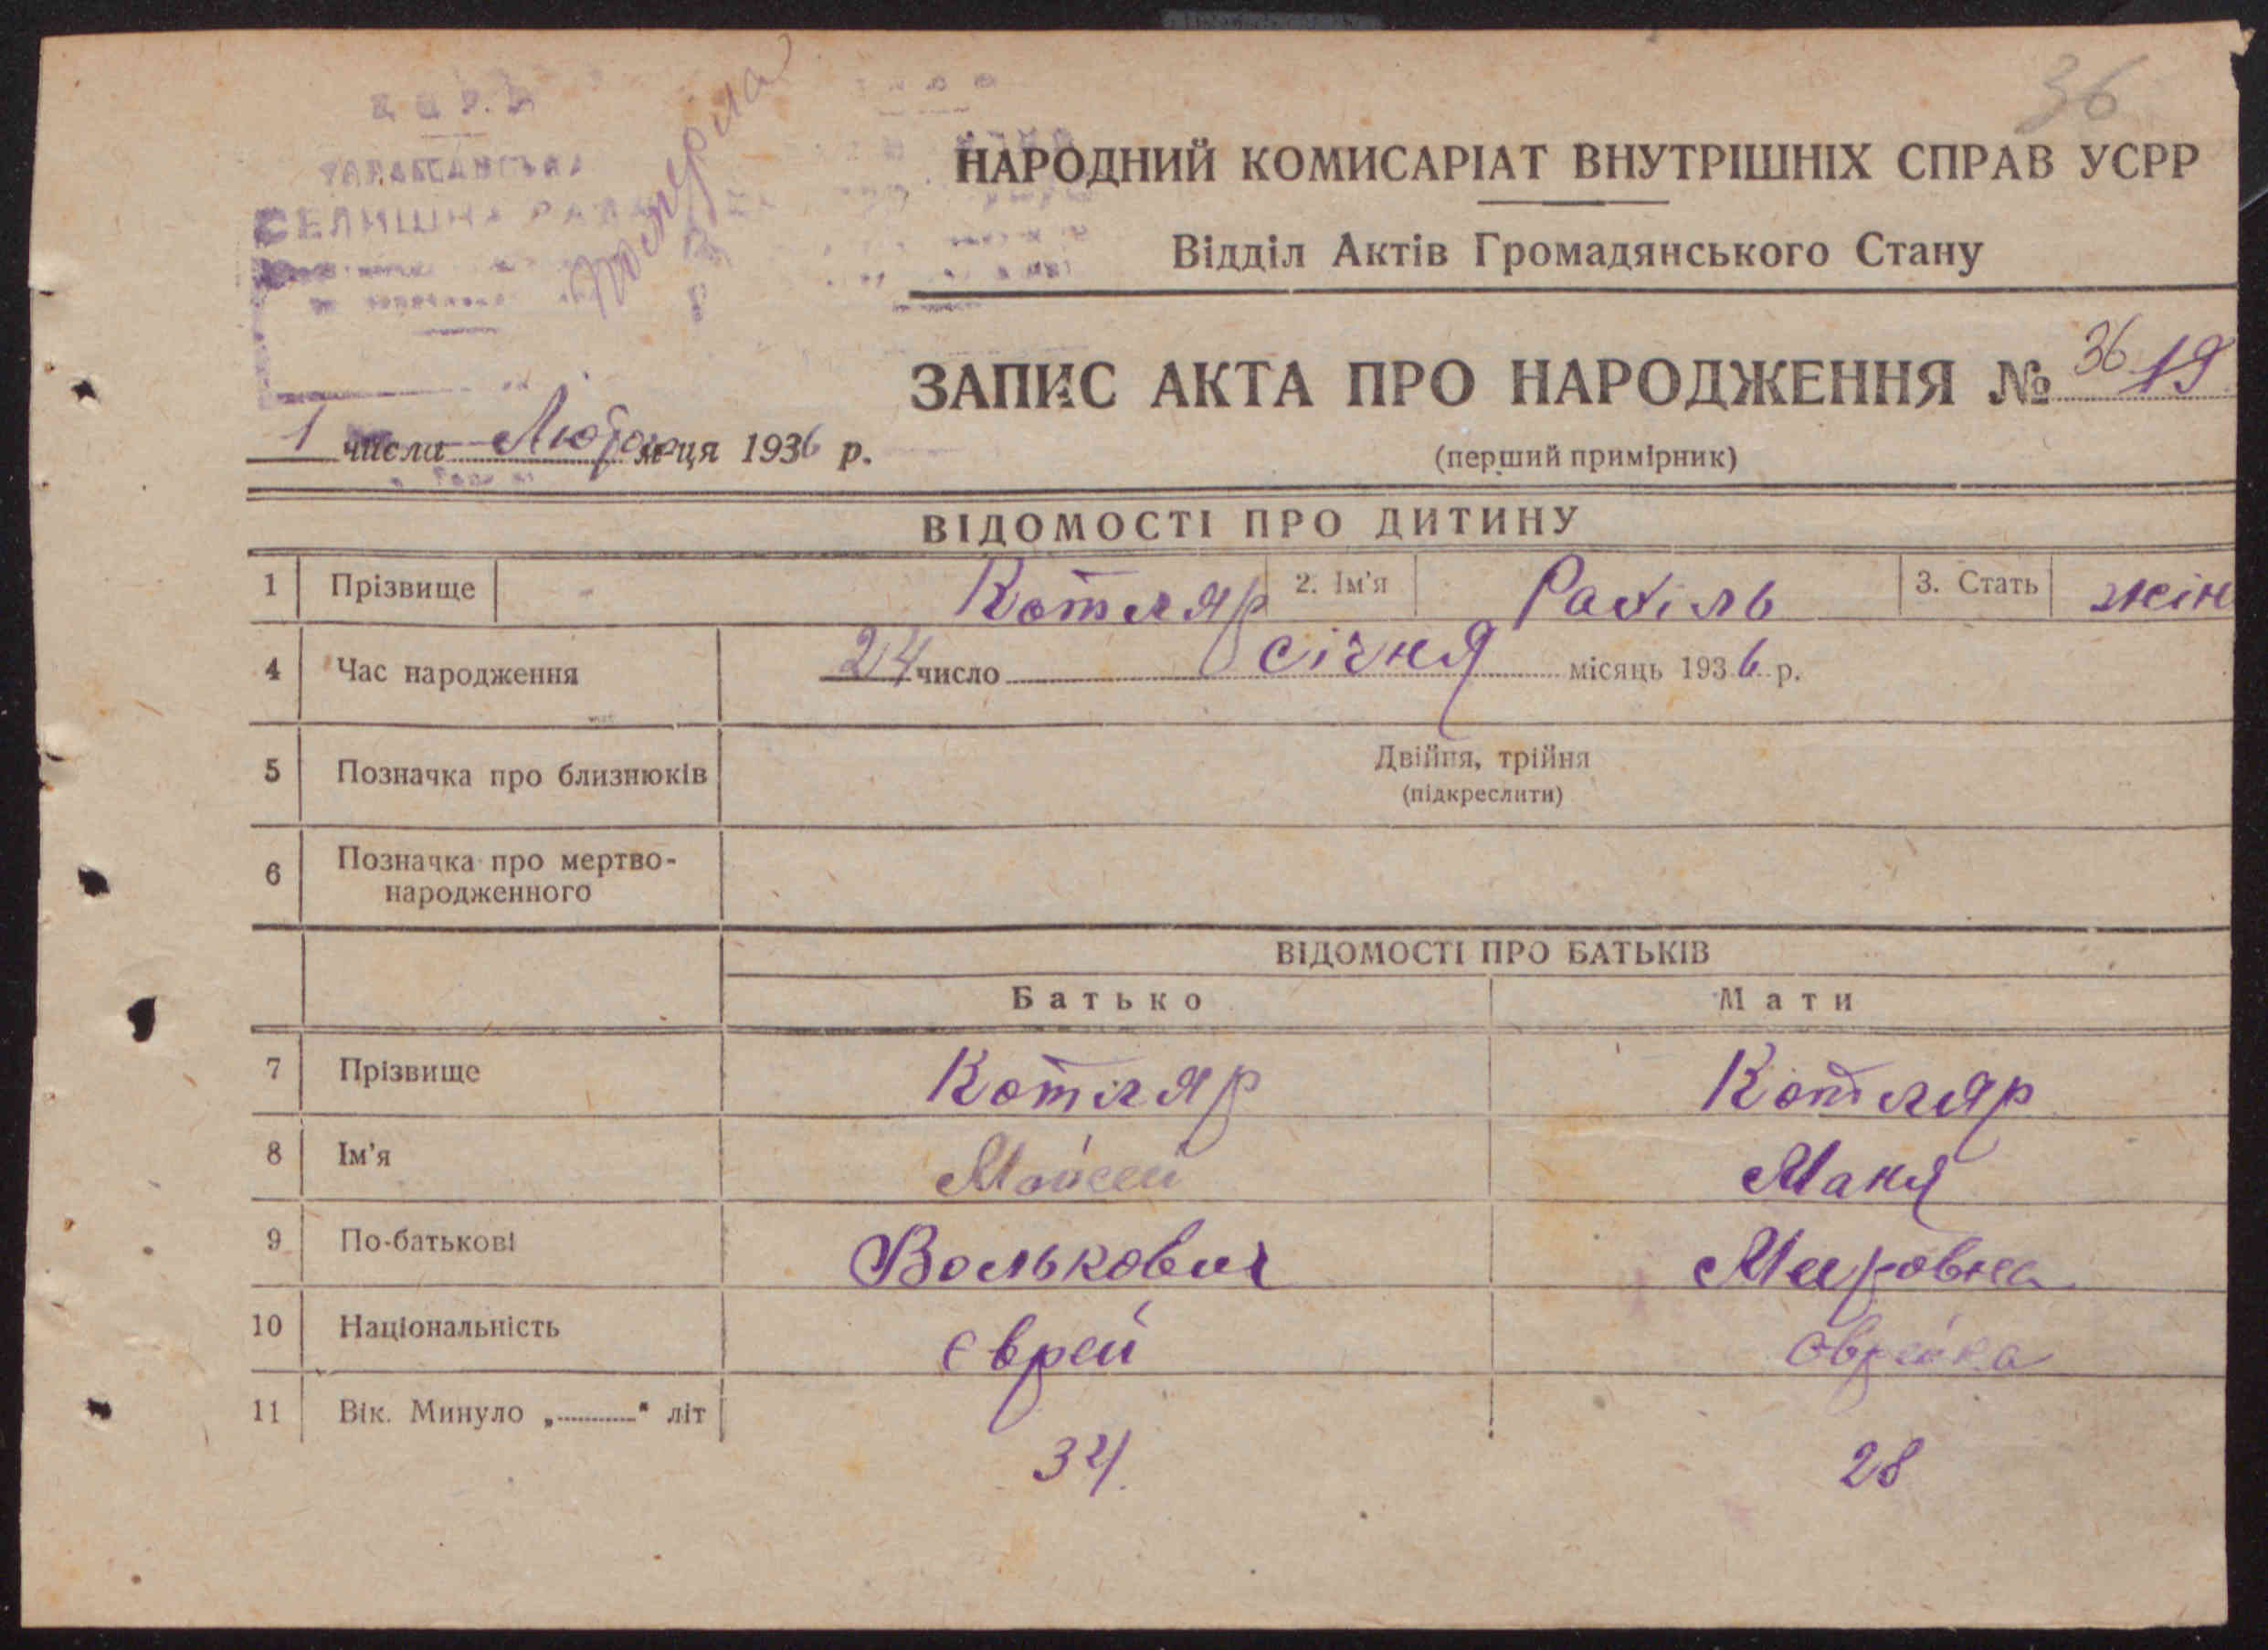 36
НАРОДНИЙ КОМИСАРІАТ ВНУТРІШНІХ СПРАВ УСРР
Відділ Актів Громадянського Стану
СЕЛИЩНА РАДА
ЗАПИС АКТА ПРО НАРОДЖЕННЯ № 36 19
1 числа Лютого м-ця 1936 р.
(перший примірник)
ВІДОМОСТІ ПРО ДИТИНУ
1 Прізвище Котляр 2. Ім'я Рахіль 3. Стать жін
4 Час народження 24 число січня місяць 1936 р.
5 Позначка про близнюків Двійня, трійня
(підкреслити)
6 Позначка про мертво-
народженного
ВІДОМОСТІ ПРО БАТЬКІВ
Батько Мати
7 Прізвище Котляр Котляр
8 Ім'я Мойсей Маня
9 По-батькові Волькович Меировна
10 Національність єврей єврейка
11 Вік. Минуло „ " літ 34. 28